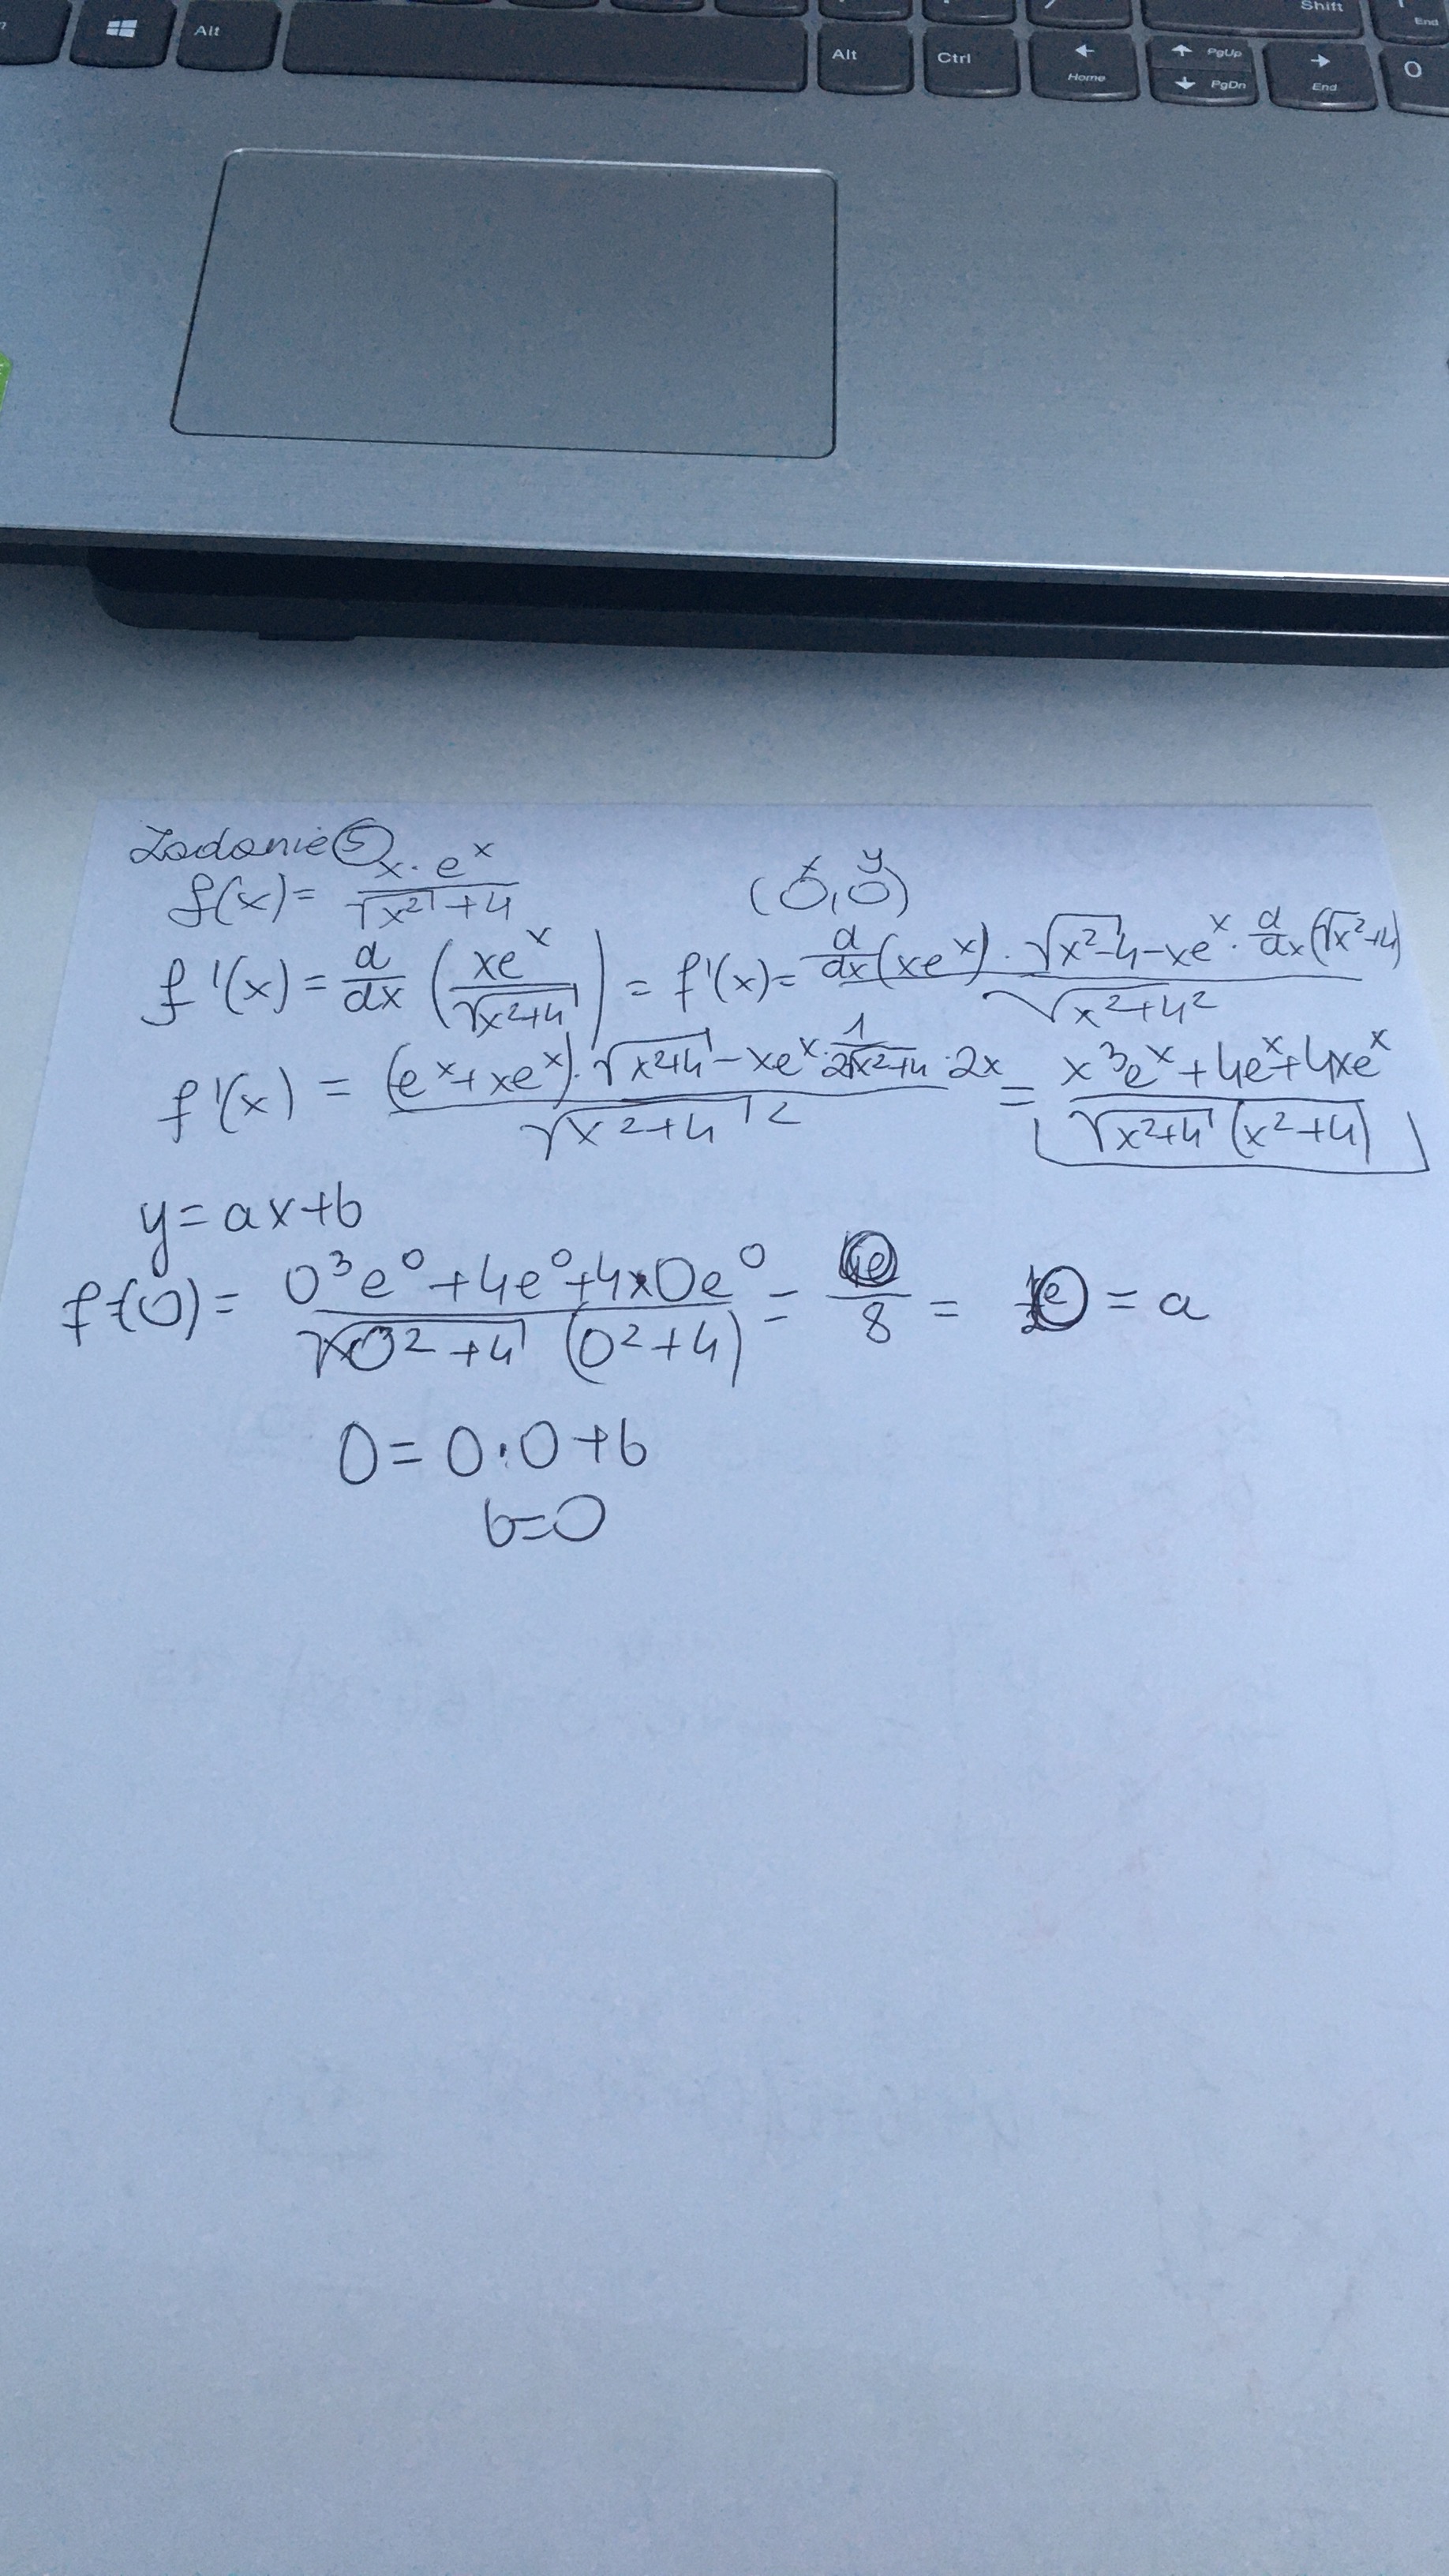 Alt Alt Ctrl Home PgUp PgDn Shift End End 0
Zadanie 5
f(x) = x·e^x / √x² + 4 (0,0) x y
f'(x) = d/dx (xe^x / √x²+4) = f'(x) = d/dx(xe^x) · √x²-4 - xe^x · d/dx(√x²+4) / √x²+4²
f'(x) = (e^x + xe^x) · √x²+4 - xe^x · 1/2√x²+4 · 2x / √x²+4² = x³e^x + 4e^x + 4xe^x / √x²+4 (x²+4)
y = ax+b
f'(0) = 0³e⁰ + 4e⁰ + 4·0e⁰ / √0²+4 (0²+4) = / 8 = = a
0 = 0·0+b
b=0